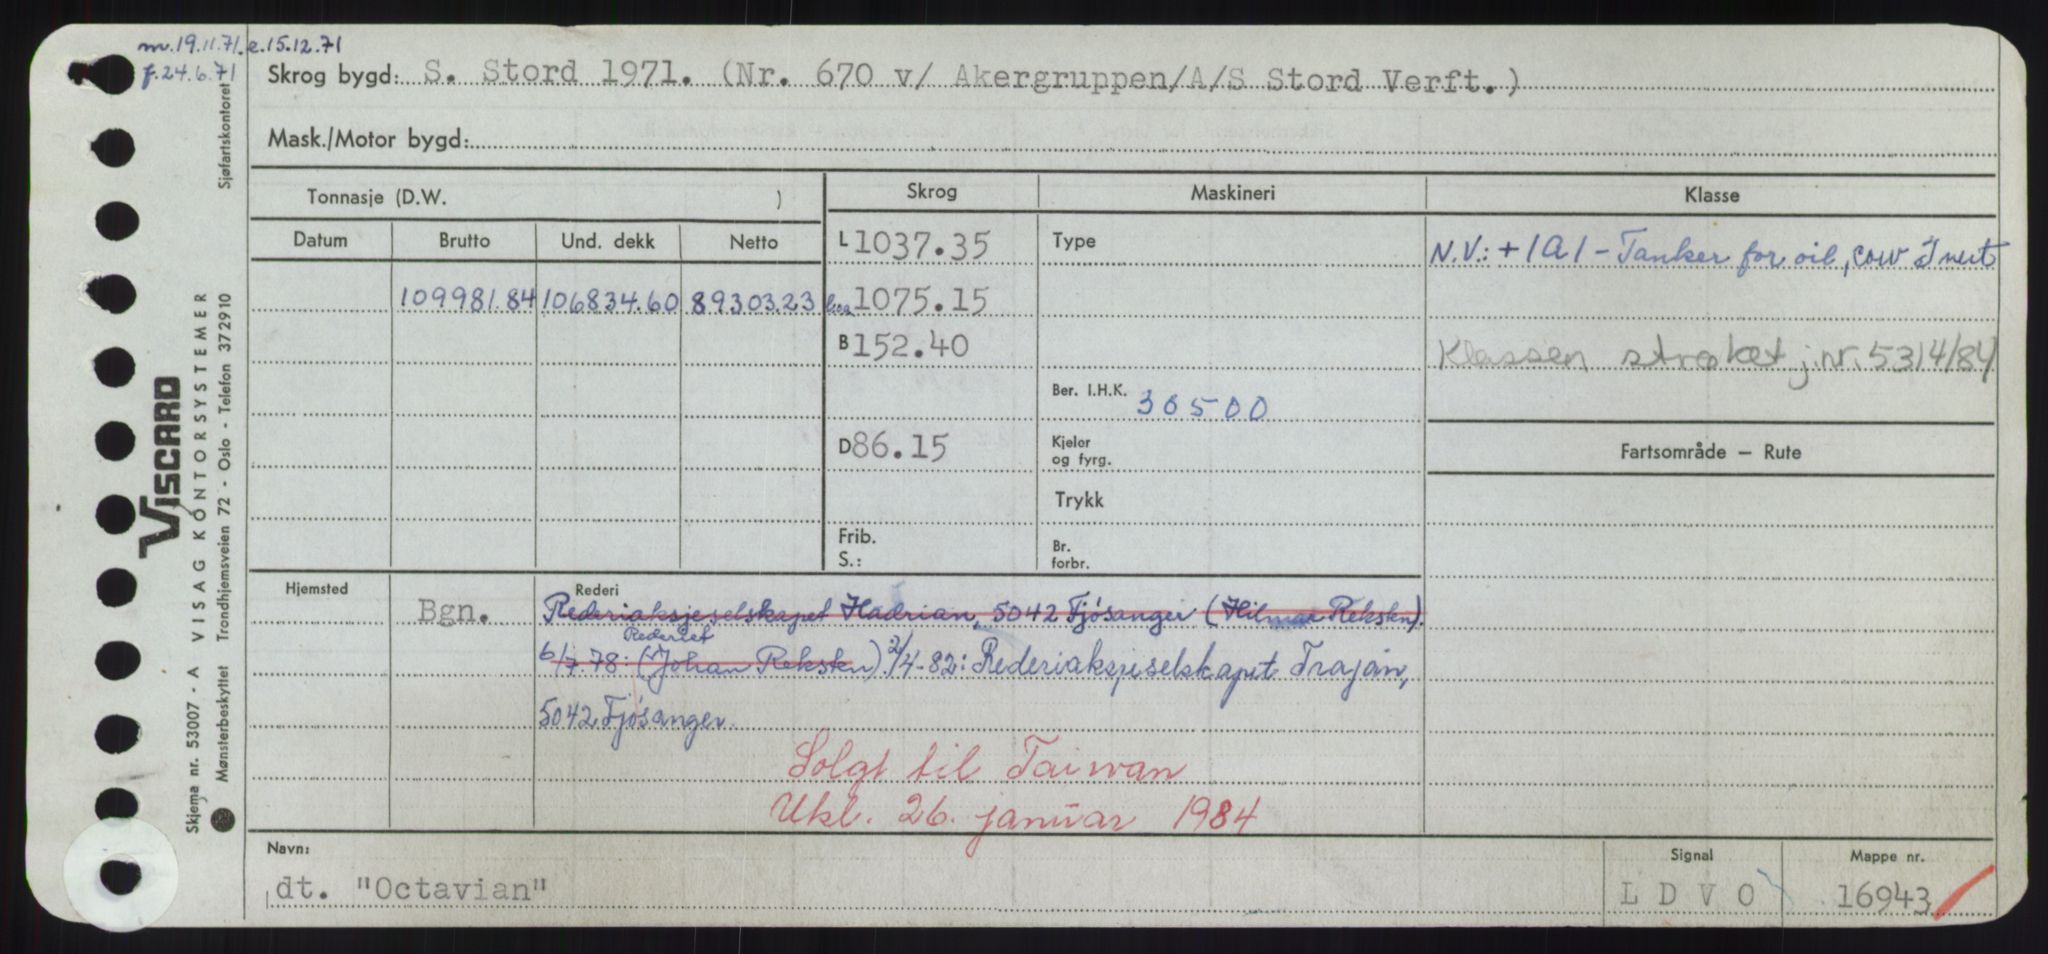 m. 19.11.71. e. 15.12.71
f. 24.6.71
Skrog bygd: S. Stord 1971. (Nr. 670 v/ Akergruppen/A/S Stord Verft.)
Mask./Motor bygd:
Tonnasje (D.W. )
Skrog
Maskineri
Klasse
Datum
Brutto
Und. dekk
Netto
L 1037.35
Type
N.V.: +1A1 - Tanker for oil, cow Inert
109981.84 106834.60 89303.23
loa 1075.15
B 152.40
Klassen strøket j.nr. 5314/84
Ber. I.H.K. 30500
D 86.15
Kjeler
og fyrg.
Fartsområde — Rute
Trykk
Frib.
S.:
Br.
forbr.
Hjemsted
Rederi
Bgn.
Rederiaksjeselskapet Hadrian, 5042 Fjøsanger (Hilmar Rekstn).
Rederiet
6/7.78: (Johan Rekstn). 2/4-82: Rederiaksjeselskapet Trajan,
5042 Fjøsanger.
Solgt til Taiwan
Utkl. 26. januar 1984
Navn:
dt. "Octavian"
Signal
L D V O
Mappe nr.
16943
Sjøfartskontoret
VISCARD
Skjema nr. 53007 - A VISAG KONTORSYSTEMER
Mønsterbeskyttet Trondhjemsveien 72 - Oslo - Telefon 372910